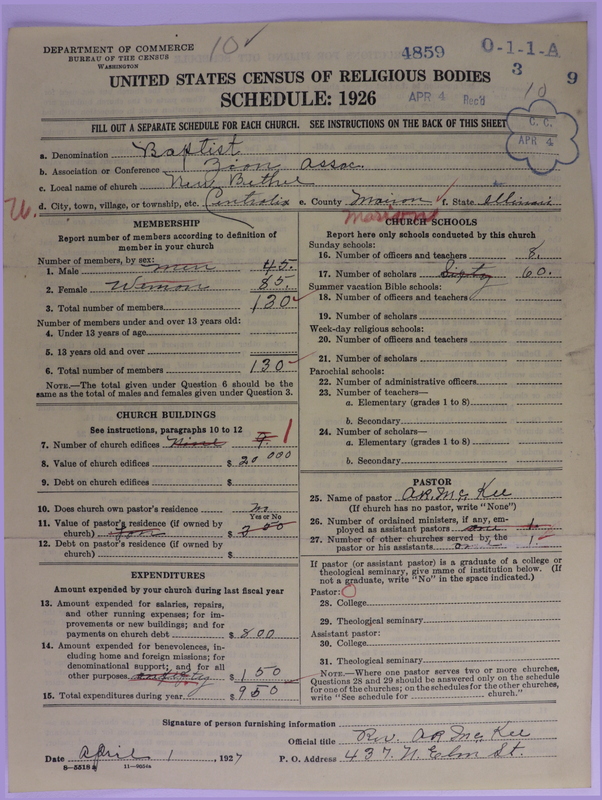 DEPARTMENT OF COMMERCE
BUREAU OF THE CENSUS
WASHINGTON
10
4859
0-1-1-A
3
9
UNITED STATES CENSUS OF RELIGIOUS BODIES
SCHEDULE: 1926
APR 4 Rec'd
10
C. C.
APR 4
FILL OUT A SEPARATE SCHEDULE FOR EACH CHURCH. SEE INSTRUCTIONS ON THE BACK OF THIS SHEET
a. Denomination Baptist
b. Association or Conference Zion Assoc.
c. Local name of church New Bethel
d. City, town, village, or township, etc. Centralia e. County Mairon f. State Illinois
Marion
MEMBERSHIP
Report number of members according to definition of
member in your church
Number of members, by sex:
1. Male men 45.
2. Female Wemon 85.
3. Total number of members 130
Number of members under and over 13 years old:
4. Under 13 years of age
5. 13 years old and over
6. Total number of members 130
NOTE.—The total given under Question 6 should be the
same as the total of males and females given under Question 3.
CHURCH BUILDINGS
See instructions, paragraphs 10 to 12
7. Number of church edifices 1
8. Value of church edifices $ 20 000
9. Debt on church edifices $
10. Does church own pastor's residence
Yes or No
11. Value of pastor's residence (if owned by
church) $ 300
12. Debt on pastor's residence (if owned by
church) $
EXPENDITURES
Amount expended by your church during last fiscal year
13. Amount expended for salaries, repairs,
and other running expenses; for im-
provements or new buildings; and for
payments on church debt $ 800
14. Amount expended for benevolences, in-
cluding home and foreign missions; for
denominational support; and for all
other purposes $ 150
15. Total expenditures during year $ 950
CHURCH SCHOOLS
Report here only schools conducted by this church
Sunday schools:
16. Number of officers and teachers 8.
17. Number of scholars Sixty 60.
Summer vacation Bible schools:
18. Number of officers and teachers
19. Number of scholars
Week-day religious schools:
20. Number of officers and teachers
21. Number of scholars
Parochial schools:
22. Number of administrative officers
23. Number of teachers—
a. Elementary (grades 1 to 8)
b. Secondary
24. Number of scholars—
a. Elementary (grades 1 to 8)
b. Secondary
PASTOR
25. Name of pastor A.R. McKee
(If church has no pastor, write "None")
26. Number of ordained ministers, if any, em-
ployed as assistant pastors one 1.
27. Number of other churches served by the
pastor or his assistants one 1.
If pastor (or assistant pastor) is a graduate of a college or
theological seminary, give name of institution below. (If
not a graduate, write "No" in the space indicated.)
Pastor: O
28. College
29. Theological seminary
Assistant pastor:
30. College
31. Theological seminary
NOTE.—Where one pastor serves two or more churches,
Questions 28 and 29 should be answered only on the schedule
for one of the churches; on the schedules for the other churches,
write "See schedule for church."
Signature of person furnishing information
Official title Rev. A.R. McKee
Date April 1, 1927 P. O. Address 437 N. Elm St.
8-5518 11-9554a